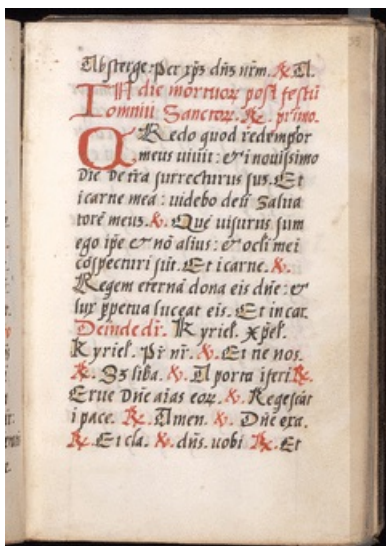 Absterge: per xp̄s dñs nr̄m. ℟. A.
In die mortuoꝝ post festū
omniū Sanctoꝝ. ℟. primo.
CRedo quod redemptor
meus uiuit: et i nouissimo
die de t̄ra surrecturus sus. Et
i carne mea: uidebo deū Salua
torē meus. ℣. Quē uisurus sum
ego ip̄e et nō alius: et ocl̄i mei
cōspecturi sūt. Et i carne. ℣.
Regem eternā dona eis dn̄e: et
lux ꝑpetua luceat eis. Et in car.
Deinde dr̄. Kyriel̄. Xpēl̄.
Kyriel̄. Pr̄ nr̄. ℣. Et ne nos.
℟. Sꝫ liba. ℣. A porta iferi. ℟.
Erue Dn̄e aīas eoꝝ. ℣. Regescāt
i pace. ℟. Amen. ℣. Dn̄e exa.
℟. Et cla. ℣. dn̄s. uobi ℟. Et